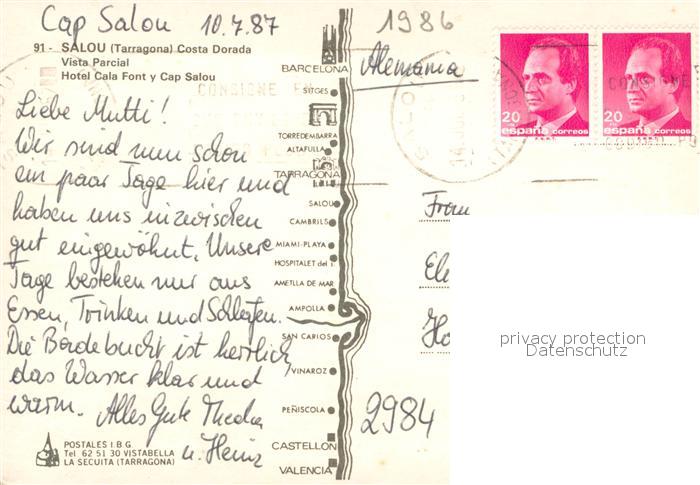 Cap Salou 10.7.87
1986
91 - SALOU (Tarragona) Costa Dorada
Vista Parcial
Hotel Cala Font y Cap Salou
Alemania
Liebe Mutti!
Wir sind nun schon
ein paar Tage hier und
haben uns inzwischen
gut eingewöhnt. Unsere
Tage bestehen nur aus
Essen, Trinken und Schlafen.
Die Badebucht ist herrlich,
das Wasser klar und
warm. Alles Gute Thedia
u. Heinz
POSTALES I.B.G.
Tel 62 51 30 VISTABELLA
LA SECUITA (TARRAGONA)
BARCELONA
SITGES
TORREDEMBARRA
ALTAFULLA
TARRAGONA
SALOU
CAMBRILS
MIAMI-PLAYA
HOSPITALET del I.
AMETLLA DE MAR
AMPOLLA
SAN CARLOS
VINAROZ
PEÑISCOLA
CASTELLON
VALENCIA
20 PTS
españa correos
20 PTS
españa correos
CONSIGNE
CONSIGNE
SALOU
Frau
Ele
Ho
2984
privacy protection
Datenschutz